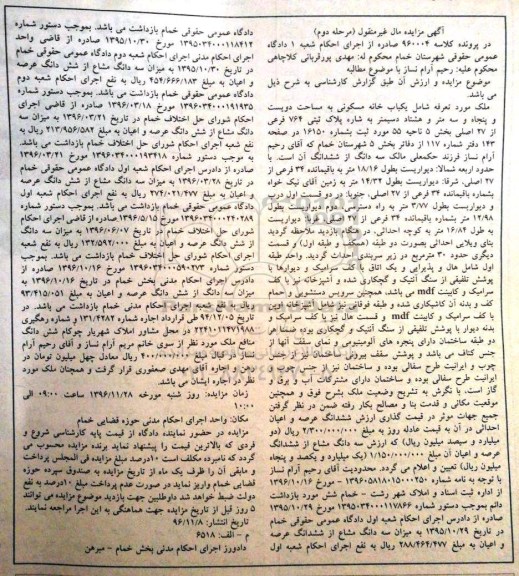 آگهی مزایده مال غیرمنقول (مرحله دوم)
در پرونده کلاسه ۹۶۰۰۰۴ صادره از اجرای احکام شعبه ۱ دادگاه
عمومی حقوقی شهرستان خمام محکوم له: مهدی پورقربانی کلاچاهی
محکوم علیه: رحیم آرام نساز با موضوع مطالبه
موضوع مزایده و ارزش آن طبق گزارش کارشناسی به شرح ذیل
می باشد.
ملک مورد تعرفه شامل یکباب خانه مسکونی به مساحت دویست
و پنجاه و سه متر و هشتاد دسیمتر به شماره پلاک ثبتی ۷۶۴ فرعی
از ۲۷ اصلی بخش ۵ ناحیه ۵۵ مورد ثبت بشماره ۱۶۱۵۰ در صفحه
۱۴۳ دفتر شماره ۱۱۷ از دفاتر بخش ۵ شهرستان خمام که آقای رحیم
آرام نساز فرزند حکمعلی مالک سه دانگ از ششدانگ آن است. با
حدود اربعه شمالا: دیواریست بطول ۱۸/۱۶ متر به باقیمانده ۳۴ فرعی از
۲۷ اصلی، شرقا: دیواریست بطول ۱۴/۳۴ متر به زمین آقای نیک خواه
بشماره باقیمانده ۳۴ فرعی از ۲۷ اصلی، جنوبا: در دو قسمت اول درب
و دیواریست بطول ۳/۷۷ متر به راه مرور دوم دیواریست بطول
۱۲/۹۸ متر بشماره باقیمانده ۳۴ فرعی از ۲۷ اصلی، غربا: دیواریست
به طول ۱۶/۸۴ متر به کوچه احداثی. در هنگام بازدید ملاحظه گردید
بنای ویلایی احداثی بصورت دو طبقه (همکف و طبقه اول) و قسمت
دیگری حدود ۳۰ مترمربع در زیر سربندی احداث گردید. واحد طبقه
اول شامل هال و پذیرایی و یک اتاق با کف سرامیک و دیوارها با
پوشش تلفیقی از سنگ آنتیک و گچکاری شده و آشپزخانه نیز با کف
سرامیک و کابینت mdf می باشد، همچنین سرویس دستشویی و حمام
کف و بدنه آن کاشیکاری شده و طبقه فوقانی نیز شامل آشپزخانه اپن
با کف سرامیک و کابینت mdf و قسمت هال نیز با کف سرامیک و
بدنه دیوار با پوشش تلفیقی از سنگ آنتیک و گچکاری بوده ضمنا هر
دو طبقه ساختمان دارای پنجره های آلومینیومی و نمای سقف آنها از
جنس کناف می باشد و پوشش سقف بیرونی ساختمان نیز از جنس
چوب و ایرانیت طرح سفالی بوده و ساختمان نیز از جنس چوب و
ایرانیت طرح سفالی بوده و ساختمان دارای مشترکات آب و برق و
گاز است. با نگرش به تشریح وضعیت ملک بشرح فوق و همچنین
موقعیت مکانی و قدمت بنا و مصالح بکار رفته ضمن در نظر گرفتن
جمیع جهات موثر در قیمت گذاری ارزش ششدانگ عرصه و اعیان
احداثی در آن به قیمت عادله روز به مبلغ ۲/۳۰۰/۰۰۰/۰۰۰ ریال (دو
میلیارد و سیصد میلیون ریال) که ارزش سه دانگ مشاع از ششدانگ
عرصه و اعیان آن مبلغ ۱/۱۵۰/۰۰۰/۰۰۰ (یک میلیارد و یکصد و پنجاه
میلیون ریال) تعیین و اعلام می گردد. محدودیت آقای رحیم آرام نساز
با توجه به نامه شماره ۱۳۹۶۰۵۸۱۸۰۱۵۰۰۰۲۵۰ مورخ ۱۳۹۶/۱۰/۱۶
از اداره ثبت اسناد و املاک شهر رشت - خمام شش مورد بازداشت
دائم بموجب دستور شماره ۱۳۹۵۰۳۴۰۰۰۱۱۷۸۶۶ مورخ ۱۳۹۵/۱۰/۲۹
صادره از دادرس اجرای احکام شعبه اول دادگاه عمومی حقوقی خمام
در تاریخ ۱۳۹۵/۱۰/۲۹ به میزان سه دانگ مشاع از شش دانگ عرصه
و اعیان به مبلغ ۲۸۸/۴۶۴/۴۷۷ ریال به نفع اجرای احکام شعبه اول
دادگاه عمومی حقوقی خمام بازداشت می باشد. بموجب دستور شماره
۱۳۹۵۰۳۴۰۰۰۱۱۸۴۱۲ مورخ ۱۳۹۵/۱۰/۳۰ صادره از قاضی واحد
اجرای احکام مدنی اجرای احکام شعبه دوم دادگاه عمومی حقوقی خمام
در تاریخ ۱۳۹۵/۱۰/۳۰ به میزان سه دانگ مشاع از شش دانگ عرصه
و اعیان به مبلغ ۴۵۴/۶۶۶/۱۸۳ ریال به نفع اجرای احکام شعبه دوم
دادگاه عمومی حقوقی خمام بازداشت می باشد. بموجب دستور شماره
۱۳۹۶۰۳۴۰۰۰۱۹۱۹۳۵ مورخ ۱۳۹۶/۰۳/۱۸ صادره از قاضی اجرای
احکام شورای حل اختلاف خمام در تاریخ ۱۳۹۶/۰۳/۲۱ به میزان سه
دانگ مشاع از شش دانگ عرصه و اعیان به مبلغ ۲۱۳/۹۵۶/۵۸۲ ریال به
نفع شعبه اجرای احکام شورای حل اختلاف خمام بازداشت می باشد.
به موجب دستور شماره ۱۳۹۶۰۳۴۰۰۰۱۹۳۴۱۸ مورخ ۱۳۹۶/۰۳/۲۱
صادره از دادرس اجرای احکام شعبه اول دادگاه عمومی حقوقی خمام
در تاریخ ۱۳۹۶/۰۳/۲۸ به میزان سه دانگ مشاع از شش دانگ عرصه
و اعیان به مبلغ ۲۷۴/۰۲۱/۴۷۷ ریال به نفع اجرای احکام شعبه اول
دادگاه عمومی حقوقی خمام بازداشت می باشد. بموجب دستور شماره
۱۳۹۶۰۳۴۰۰۰۲۴۰۲۸۹ مورخ ۱۳۹۶/۵/۱۵ صادره از قاضی اجرای احکام
شورای حل اختلاف خمام در تاریخ ۱۳۹۶/۰۶/۰۷ به میزان سه دانگ
از شش دانگ عرصه و اعیان به مبلغ ۱۳۲/۵۹۲/۰۰۰ ریال به نفع شعبه
اجرای احکام شورای حل اختلاف خمام بازداشت می باشد. بموجب
دستور شماره ۱۳۹۶۰۳۴۰۰۰۵۹۰۲۷۳ مورخ ۱۳۹۶/۱۰/۱۶ صادره از
دادرس اجرای احکام مدنی بخش خمام در تاریخ ۱۳۹۶/۱۰/۱۶ به
میزان سه دانگ از شش دانگ عرصه و اعیان به مبلغ ۹۳/۴۱۵/۰۵۱
ریال به نفع شعبه اجرای احکام مدنی خمام بازداشت می باشد. در
تاریخ ۹۴/۱۲/۰۵ طی قرارداد اجاره شماره ۱۳۱/۴۲۸۲ و شماره رهگیری
۲۲۴۱۰۲۱۴۷۱۹۸۸ در محل مشاور املاک شهریار چوکام شش دانگ
منافع ملک مورد نظر از سوی خانم مریم آرام نساز و آقای رحیم آرام
نساز در قبال مبلغ ۴۰۰/۰۰۰/۰۰۰ ریال معادل چهل میلیون تومان در
رهن و اجاره آقای مهدی صعفوری قرار گرفت و همچنان ملک مورد
نظر در اجاره ایشان می باشد.
زمان مزایده: روز شنبه مورخه ۱۳۹۶/۱۱/۲۸ ساعت ۰۹:۰۰ الی
۱۰:۰۰
مکان: واحد اجرای احکام مدنی حوزه قضایی خمام
مزایده در حضور نماینده دادگاه از قیمت پایه کارشناسی شروع و
فردی که بالاترین قیمت را پیشنهاد نماید برنده مزایده محسوب می
گردد که نامبرده مکلف است ۱۰درصد مبلغ مزایده فی المجلس پرداخت
و مابقی آن را ظرف یک ماه از تاریخ مزایده به صندوق سپرده حوزه
قضایی خمام واریز نماید در صورت عدم پرداخت مبلغ ۱۰درصد به نفع
دولت ضبط خواهد شد داوطلبین جهت بازدید موضوع مزایده می توانند
۵ روز قبل از تاریخ مزایده جهت هماهنگی به این اجرا مراجعه نمایند.
تاریخ انتشار: ۹۶/۱۱/۸
م - الف: ۶۵۱۸
دادورز اجرای احکام مدنی بخش خمام - میرهن